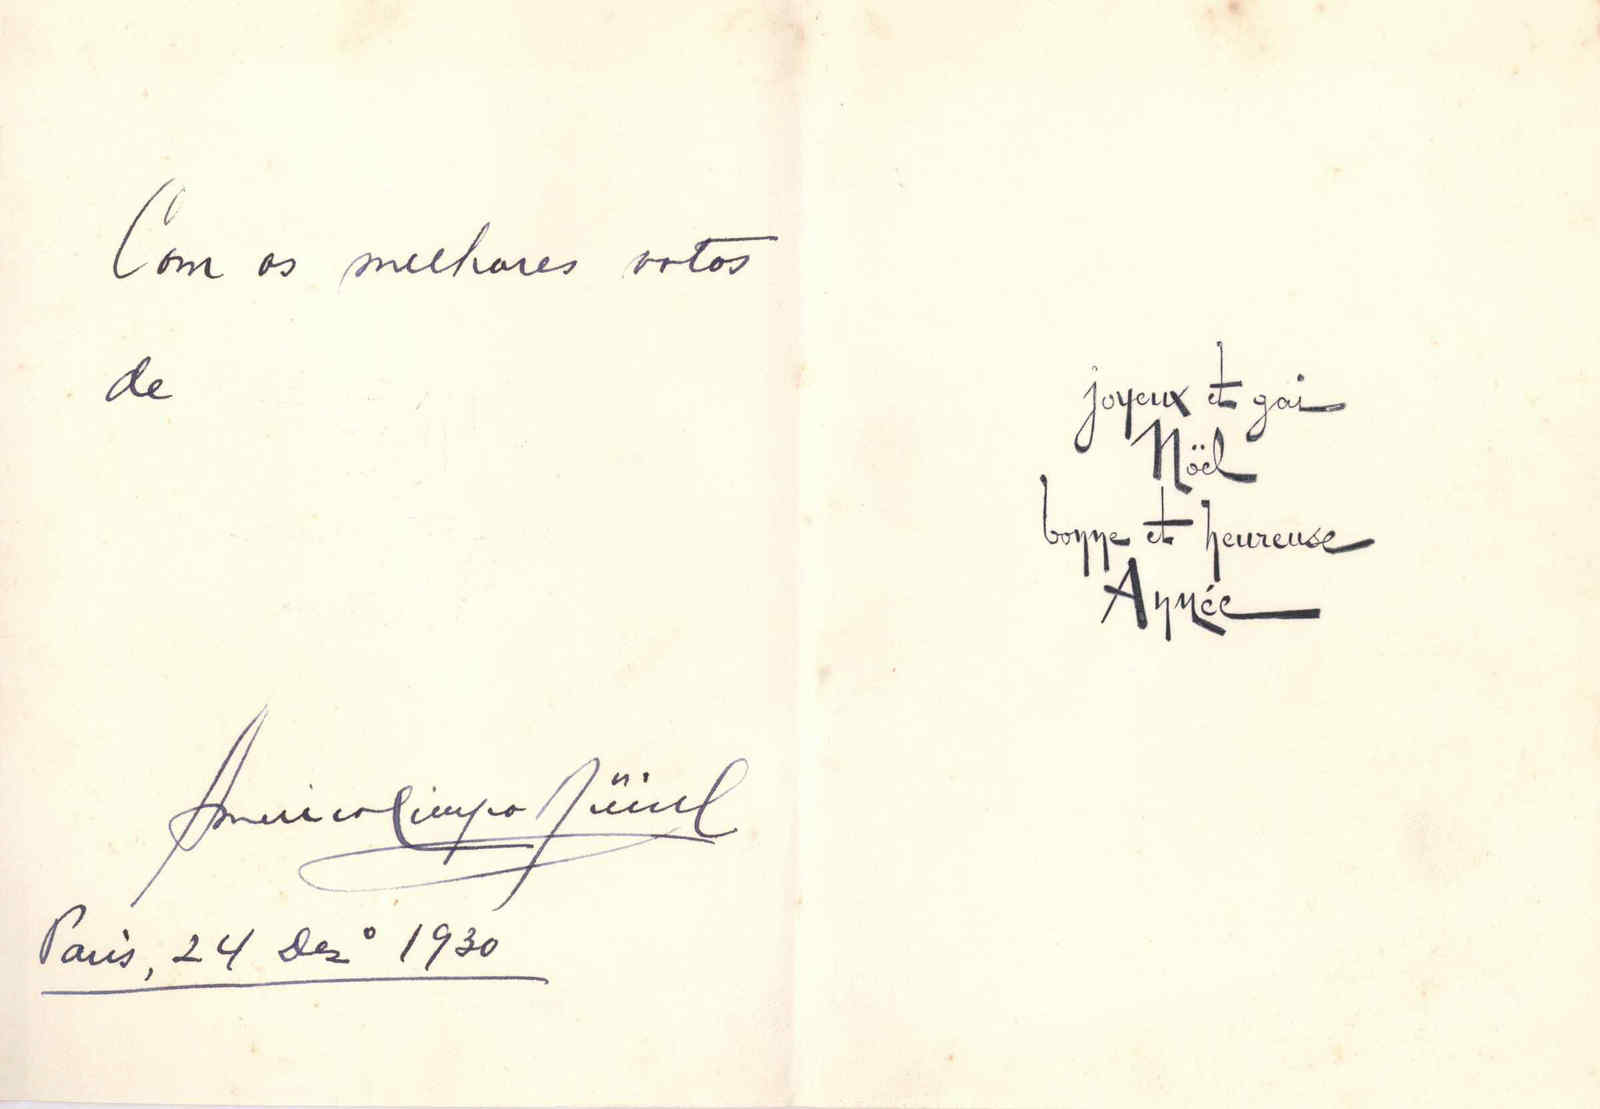 Com os melhores votos
de
Americo
Paris, 24 Dezº 1930
joyeux et gai
Nöel
bonne et heureuse
Année